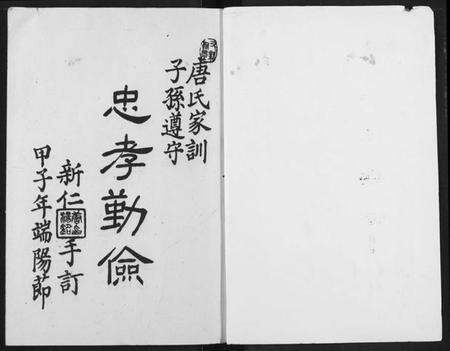 唐氏家訓
子孫遵守
忠孝勤儉
新仁手訂
甲子年端陽節